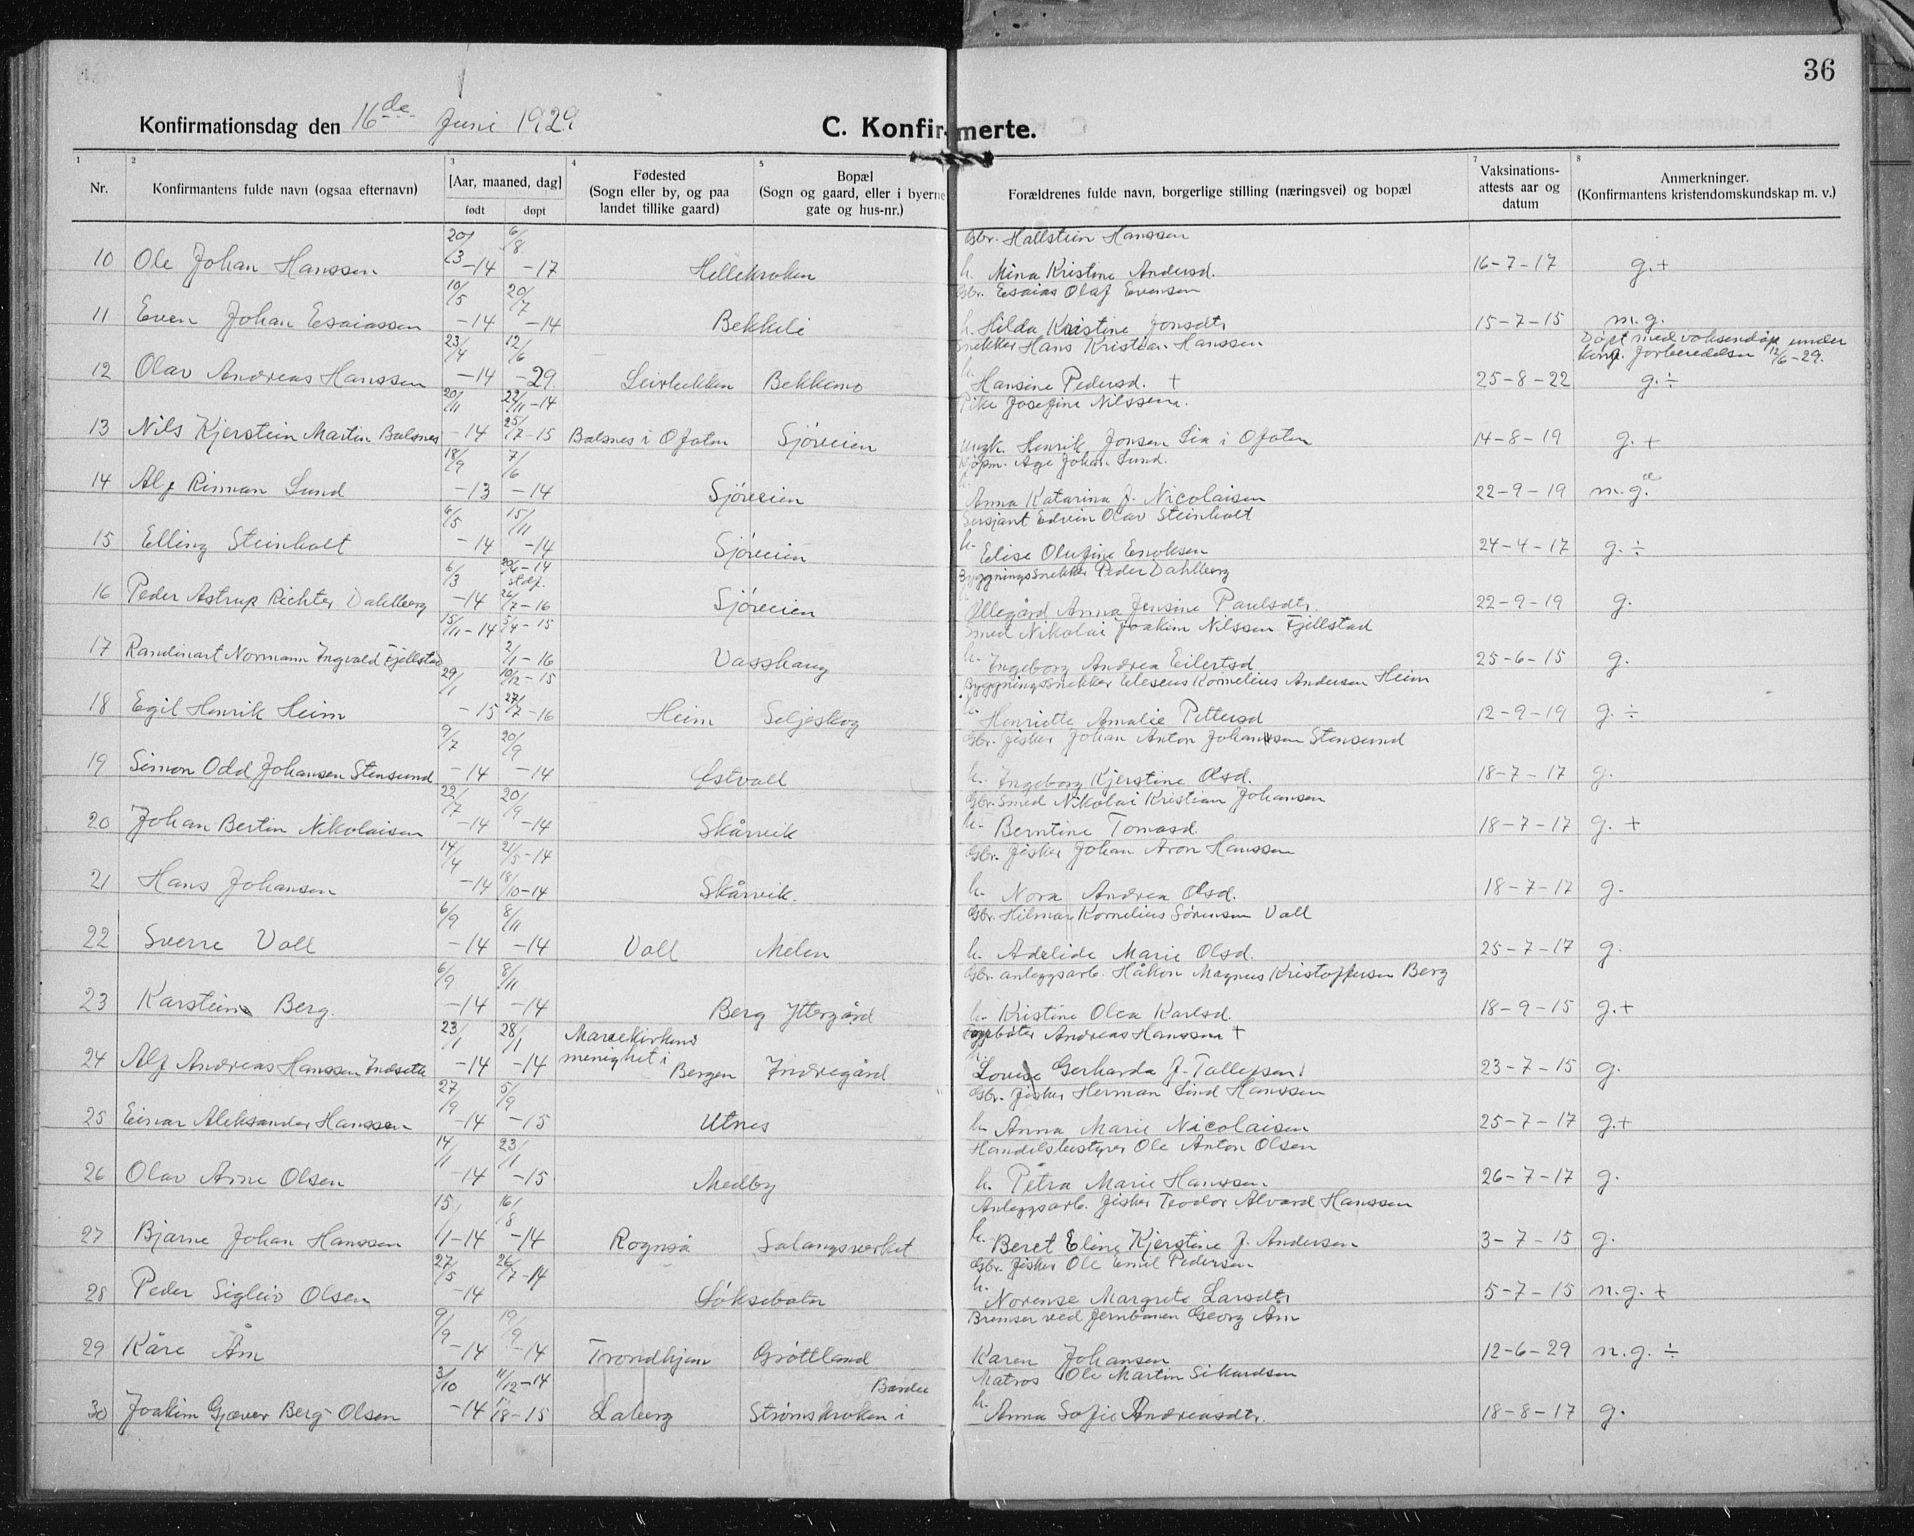 36
Konfirmationsdag den 16de Juni 1929
C. Konfirmerte.
1 2 3 4 5 7 8
Nr. Konfirmantens fulde navn (ogsaa efternavn) [Aar, maaned, dag] født døpt Fødested (Sogn eller by, og paa landet tillike gaard) Bopæl (Sogn og gaard, eller i byerne gate og hus-nr.) Forældrenes fulde navn, borgerlige stilling (næringsvei) og bopæl Vaksinations-attests aar og datum Anmerkninger. (Konfirmantens kristendomskundskap m. v.)
Gbr. Hallstein Hanssen
10 Ole Johan Hanssen 20/3 -14 6/8 -17 Hellekroken h. Mina Kristine Andersd. 16-7-17 g.+
Gbr. Esaias Olaf Evensen
11 Even Johan Esaiassen 10/5 -14 20/7 -14 Bekkeli h. Hilda Kristine Jonsdtr 15-7-15 m.g.
Snekker Hans Kristian Hanssen Døpt med voksendåp under
konf. forberedelsen 12/6-29.
12 Olav Andreas Hanssen 23/4 -14 12/6 -29 Leirbekken Bekkemo h. Hansine Pedersd. + 25-8-22 g.÷
Pike Josefine Nilssen
13 Nils Kjerstein Martin Balsnes 20/11 -14 22/11-14 25/7-15 Balsnes i Ofoten Sjøveien Ungk. Henrik Jonsen Lia i Ofoten 14-8-19 g.+
Kjøpm. Age Johan Lund.
14 Alf Rinman Lund 18/9 -13 7/6 -14 Sjøveien h. Anna Katarina J. Nicolaisen 22-9-19 m.g.
Sersjant Edvin Olav Steinholt
15 Elling Steinholt 6/5 -14 15/11 -14 Sjøveien h. Elise Olufine Enoksen 24-4-17 g.÷
Bygningssnekker Peder Dahlberg
16 Peder Astrup Richter Dahlberg 6/3 -14 20/6-14 26/7-16 Sjøveien Ellegård Anna Jensine Paulsdtr. 22-9-19 g.
Smed Nikolai Joakim Nilssen Fjellstad
17 Randinart Normann Ingvald Fjellstad 15/11-14 5/4-15 2/1-16 Vasshaug h. Ingeborg Andrea Eilertsd 25-6-15 g.
Byggningssnekker Eleseus Kornelius Andersen Heim
18 Egil Henrik Heim 29/1 -15 10/12-15 27/7-16 Heim Seljeskog h. Henriette Amalie Pettersd 12-9-19 g.÷
Gbr. fisker Johan Anton Johansen Stensund
19 Simon Odd Johansen Stensund 9/7 -14 20/9 -14 Østvoll h. Ingeborg Kjerstine Olsd. 18-7-17 g.
Gbr. Smed Nikolai Kristian Johansen
20 Johan Bertin Nikolaisen 22/7 -14 20/9 -14 Skårvik h. Berntine Tomasd. 18-7-17 g.+
Gbr. fisker Johan Aron Hanssen
21 Hans Johansen 14/4 -14 21/5-14 18/10-14 Skårvik. h. Nora Andrea Olsd. 18-7-17 g.
Gbr. Hilmar Kornelius Sørensen Voll
22 Sverre Voll 6/9 -14 8/11 -14 Voll Melen h. Adelide Marie Olsd. 25-7-17 g.
Gbr. anleggsarb. Håkon Magnus Kristoffersen Berg
23 Karstein Berg. 6/9 -14 8/11 -14 Berg Yttergård h. Kristine Olea Karlsd. 18-9-15 g.+
Andreas Hanssen +
24 Alf Andreas Hanssen Indsette 23/1 -14 28/1 -14 Mariekirkens menighet i Bergen Indregård h. Lovise Gerharda J. Tallefsen 23-7-15 g.
Gbr. fisker Herman Lind Hanssen
25 Einar Aleksander Hanssen 27/9 -14 5/9 -15 Utnes h. Anna Marie Nicolaisen 25-7-17 g.+
Handelsbestyrer Ole Anton Olsen
26 Olav Arne Olsen 14/11 -14 23/1 -15 Medby h. Petra Marie Hanssen 26-7-17 g.
Anleggsarb. fisker Teodor Alvard Hanssen
27 Bjarne Johan Hanssen 15/1-14 16/8 -14 Rognså Salangsverket h. Beret Eline Kjerstine J. Andersen 3-7-15 g.
Gbr. fisker Ole Emil Pedersen
28 Peder Sigleiv Olsen 27/5 -14 26/7-14 Løksebotn h. Norense Margrete Larsdtr 5-7-15 n.g.+
Bremser ved Jernbanen Georg Åm
29 Kåre Åm 9/9 -14 19/9 -14 Trondhjem Grøttland Karen Johansen 12-6-29 n.g.÷
Matros Ole Martin Sikardsen
30 Joakim Gjæver Berg-Olsen 3/10 -14 11/12-14 11/8-15 Laberg Strømskroken i Bardu h. Anna Sofie Andreasdtr. 18-8-17 g.